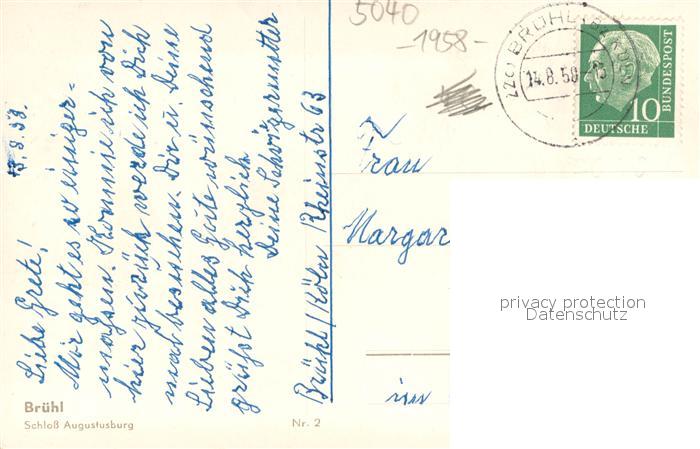 5040
-1958-
(22c) BRÜHL (BZ KÖLN)
14.8.58
10
DEUTSCHE
BUNDESPOST
13.8.58.
Liebe Grete!
Mir geht es so einiger-
maßen. Komme ich von
hier zurück werde ich Dich
mal besuchen. Dir u. Deine
Lieben alles Gute wünschend
grüßt Dich herzlich
Deine Schwiegermutter
Brühl/Köln Rheinstr 63
Frau
Margar
in
privacy protection
Datenschutz
Brühl
Schloß Augustusburg
Nr. 2